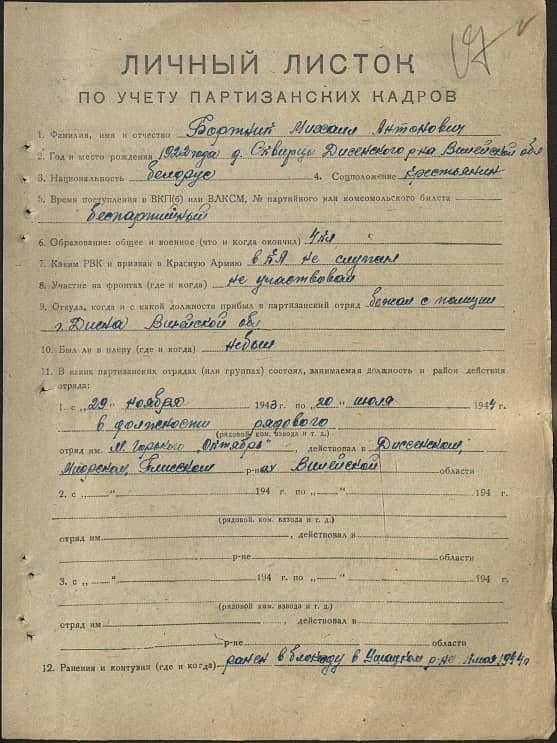 ЛИЧНЫЙ ЛИСТОК
ПО УЧЕТУ ПАРТИЗАНСКИХ КАДРОВ
1. Фамилия, имя и отчество Бортний Михаил Антонович
2. Год и место рождения 1922 года д. Сквирцы Дисенского р-на Вилейской обл
3. Национальность белорус 4. Соцположение крестьянин
5. Время поступления в ВКП(б) или ВЛКСМ, № партийного или комсомольского билета
беспартийный
6. Образование: общее и военное (что и когда окончил) 4 кл
7. Каким РВК и призван в Красную Армию в КА не служил
8. Участие на фронтах (где и когда) не участвовал
9. Откуда, когда и с какой должности прибыл в партизанский отряд бежал с полиции
г. Дисна Вилейской обл
10. Был ли в плену (где и когда) не был
11. В каких партизанских отрядах (или группах) состоял, занимаемая должность и район действия
отряда:
1. с „29" ноября 1943 г. по „20" июля 1944 г.
в должности рядового
(рядовой, ком. взвода и т. д.)
отряд им. М. Горького „Октябрь", действовал в Дисенском,
Миорском, Плисском р-нах Вилейской области
2. с „ " 194 г. по „ " 194 г.
(рядовой, ком. взвода и т. д.)
отряд им. , действовал в
р-не области
3. с „ " 194 г. по „ " 194 г.
(рядовой, ком. взвода и т. д.)
отряд им. , действовал в
р-не области
12. Ранения и контузии (где и когда) ранен в блокаду в Ушацком р-не мая 1944 г